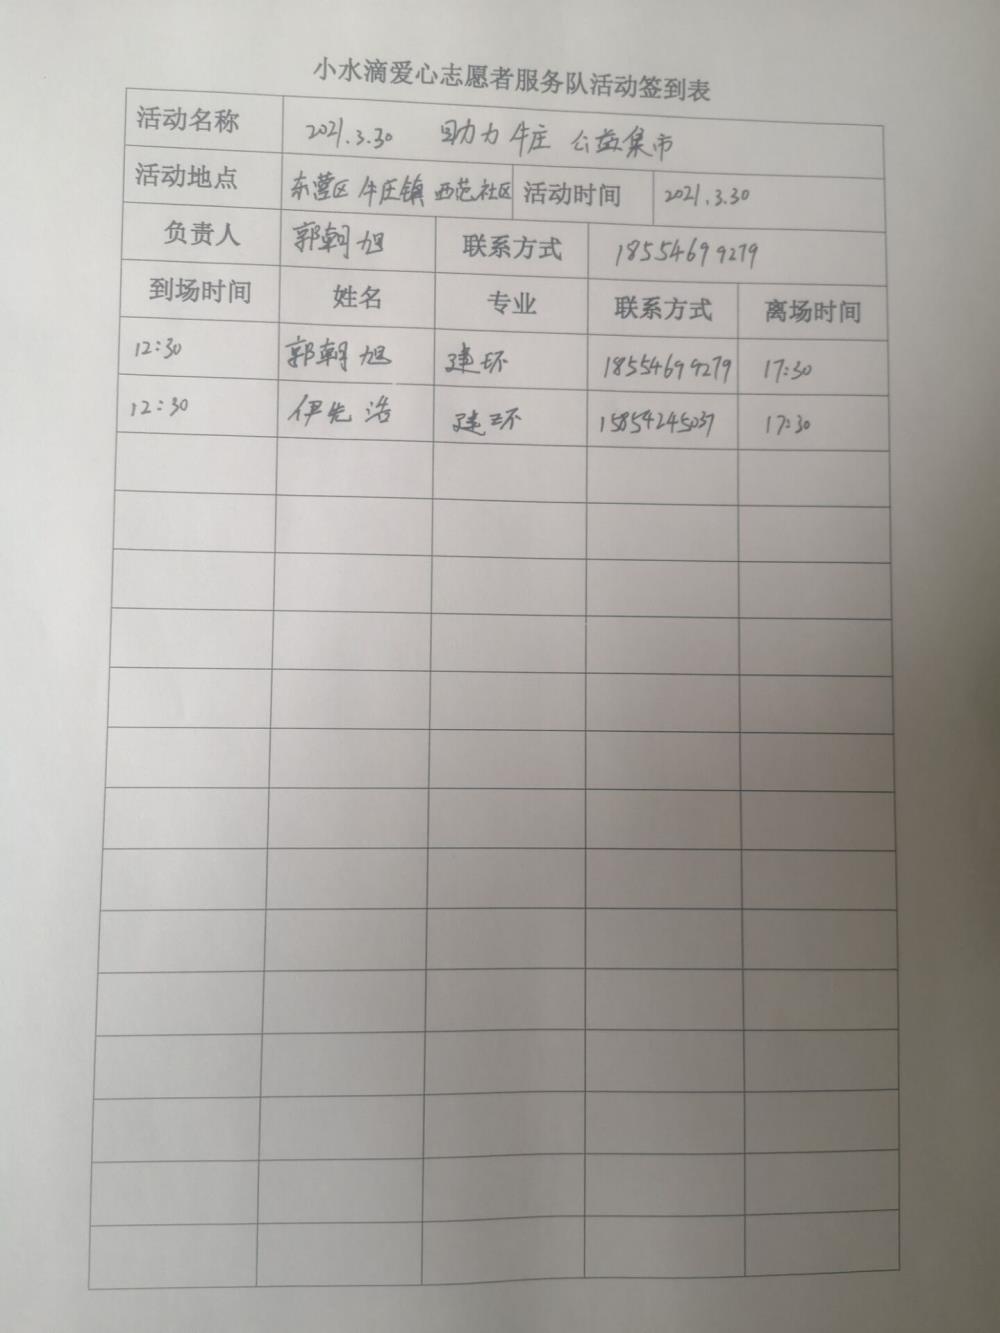 小水滴爱心志愿者服务队活动签到表
活动名称 2021.3.30 助力牛庄 公益集市
活动地点 东营区 牛庄镇 西范社区 活动时间 2021.3.30
负责人 郭朝旭 联系方式 18554699279
到场时间 姓名 专业 联系方式 离场时间
12:30 郭朝旭 建环 18554699279 17:30
12:30 伊先浩 建环 15854245037 17:30